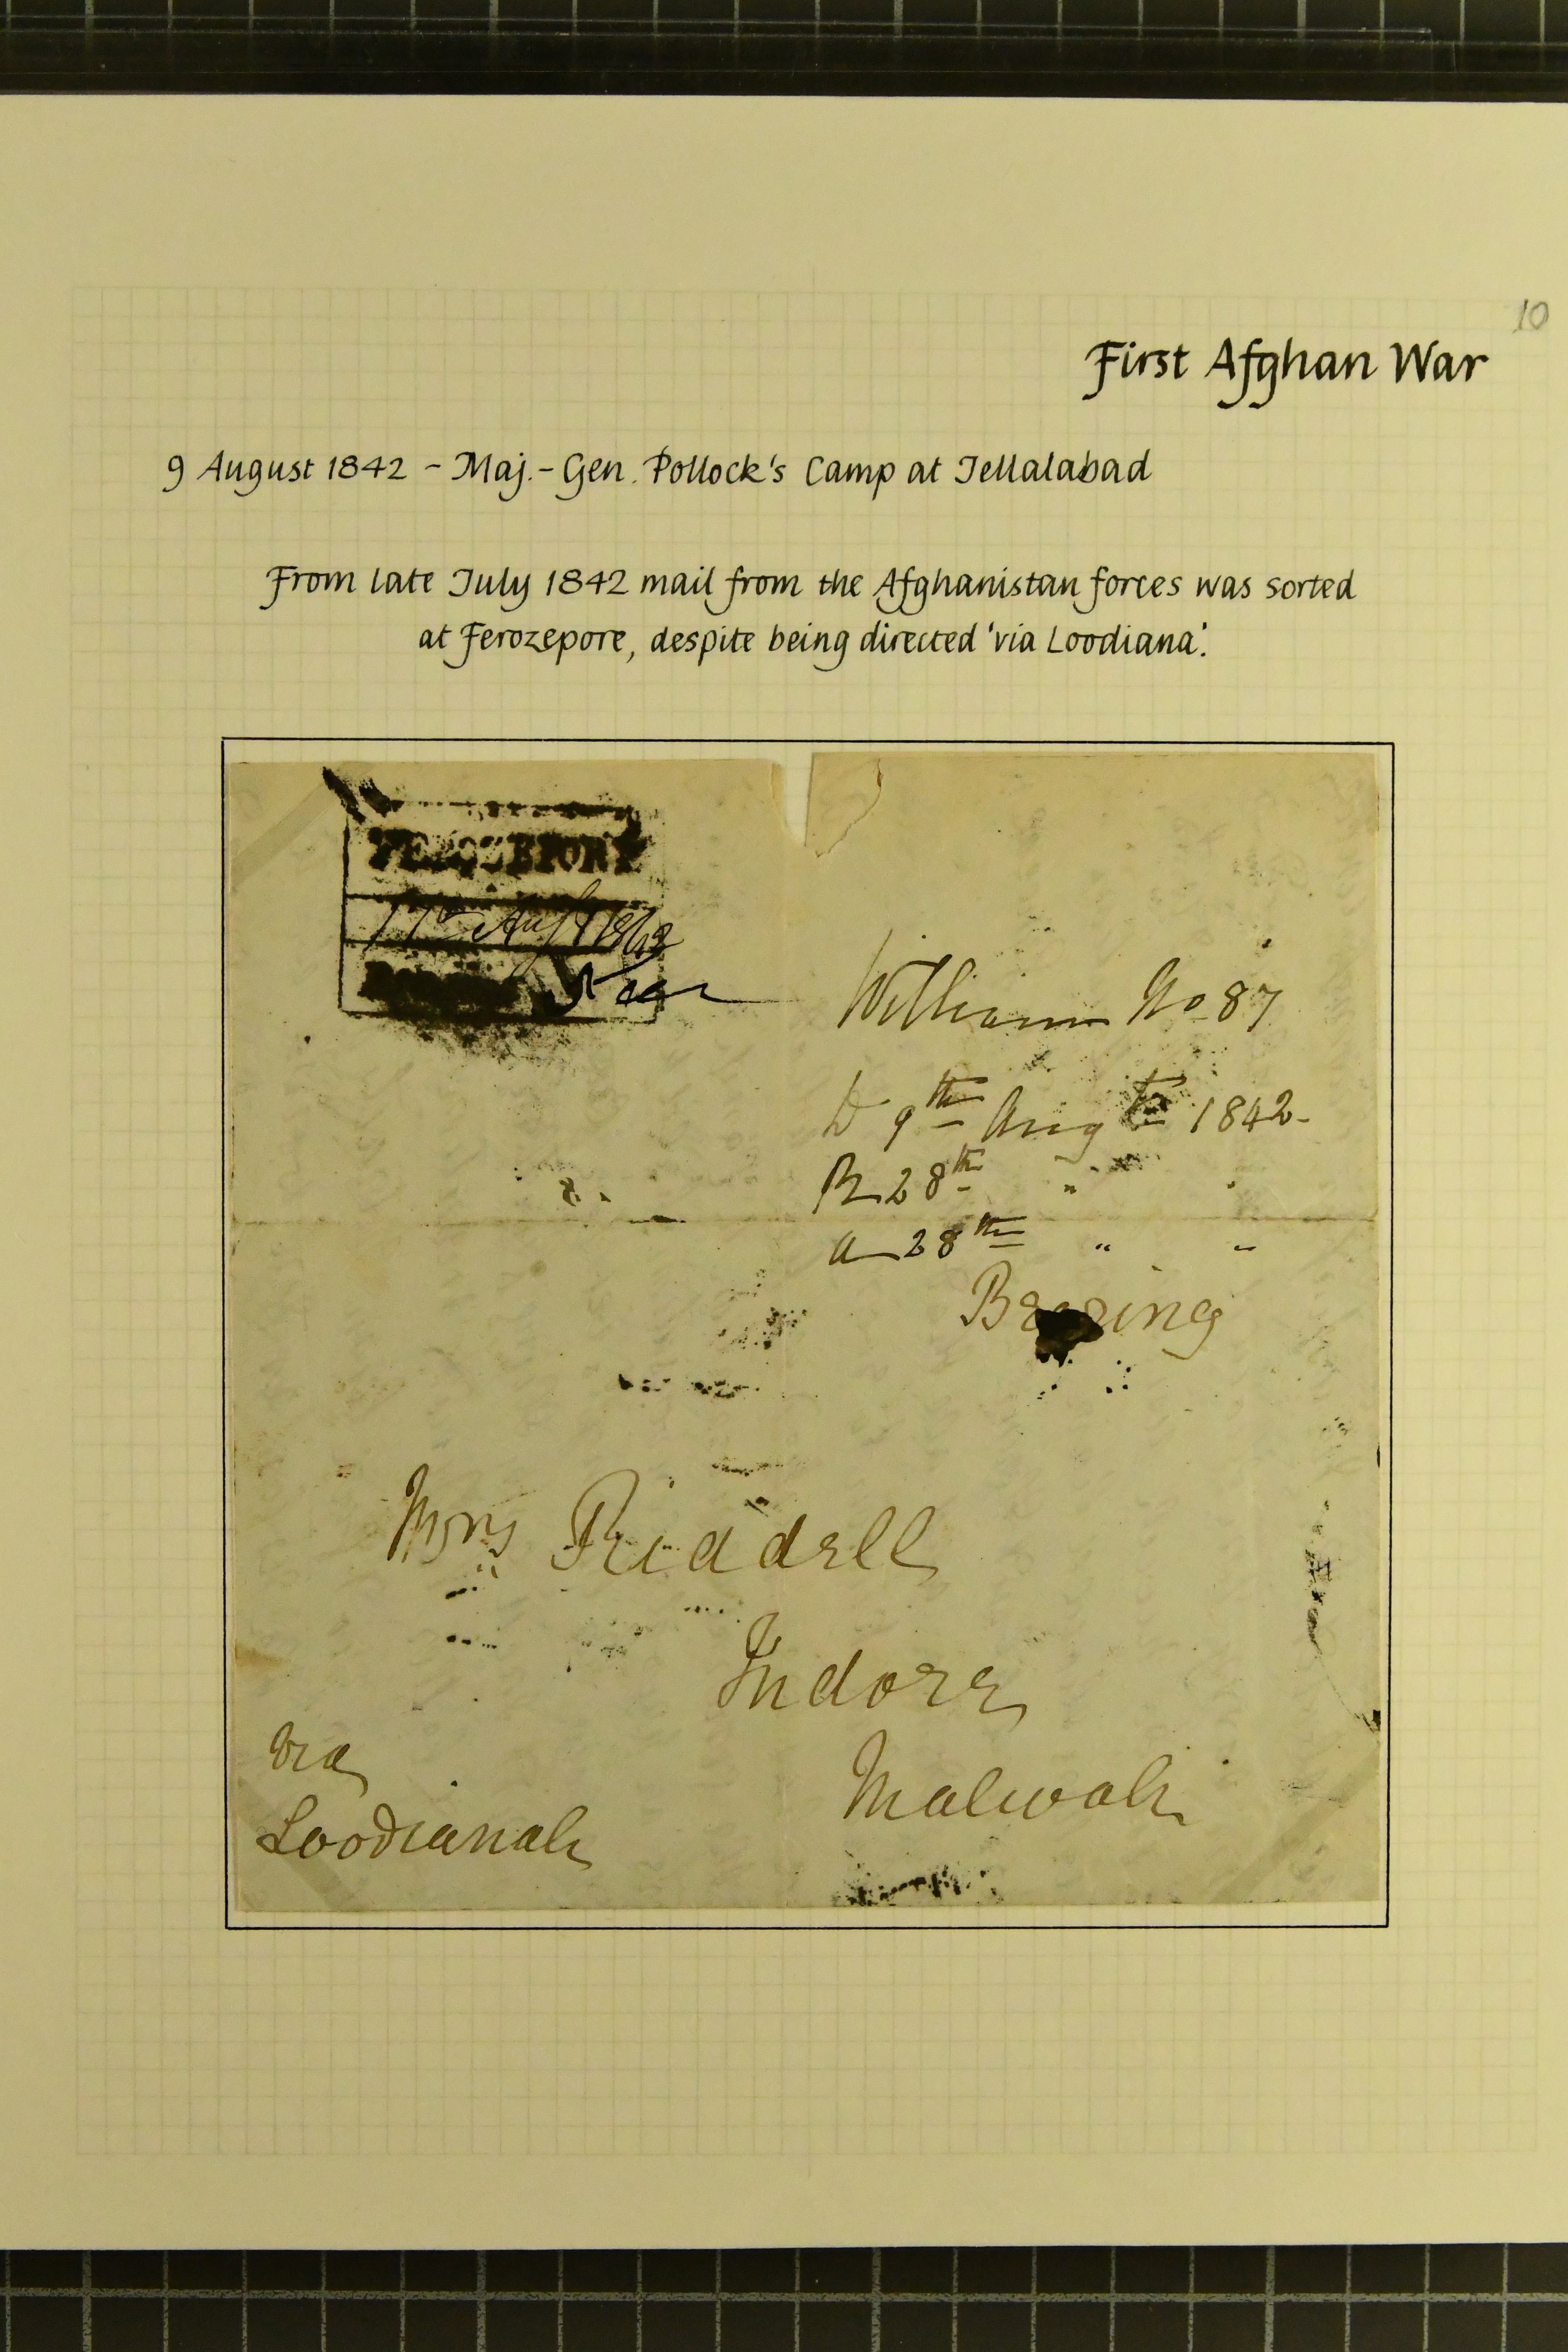 10
First Afghan War
9 August 1842 - Maj.-Gen. Pollock's Camp at Jellalabad
From late July 1842 mail from the Afghanistan forces was sorted
at Ferozepore, despite being directed 'via Loodiana'.
FEROZEPORE
17th Augt 1842
William No 87
D 9th Augt 1842-
R 28th " "
A 28th " "
Bearing
Mrs Riddell
Indore
Malwah
via
Loodianah